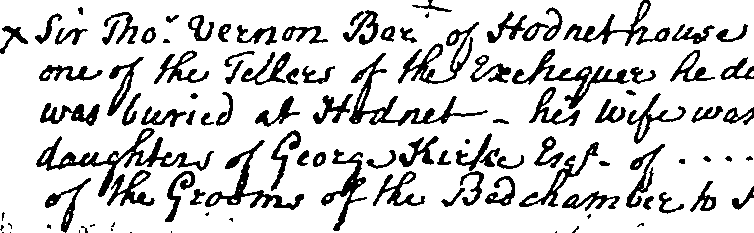 x Sir Tho.r Vernon Bar.t of Hodnet house
one of the Tellers of the Exchequer he
was buried at Hodnet - his wife was
daughters of George Kirke Esq.r - of . . . .
of the Grooms of the Bedchamber to